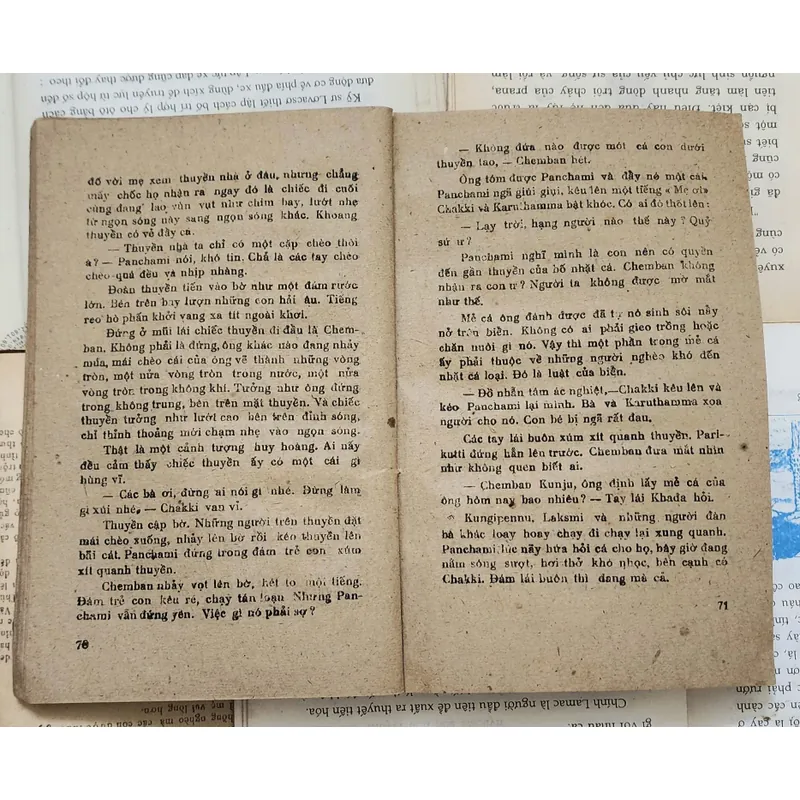 đố với mẹ xem thuyền nhà ở đâu, nhưng chẳng
mấy chốc họ nhận ra ngay đó là chiếc đi cuối
cùng đang lao vun vụt như chim bay, lướt nhẹ
từ ngọn sóng này sang ngọn sóng khác. Khoang
thuyền có vẻ đầy cá.
— Thuyền nhà ta chỉ có một cặp chèo thôi
à? — Panchami nói, khó tin. Chả là các tay chèo
chèo quá đều và nhịp nhàng.
Đoàn thuyền tiến vào bờ như một đám rước
lớn. Bên trên bay lượn những con hải âu. Tiếng
reo hò phấn khởi vang xa tít ngoài khơi.
Đứng ở mũi lái chiếc thuyền đi đầu là Chem-
ban. Không phải là đứng, ông khác nào đang nhảy
múa, mái chèo cái của ông vẽ thành những vòng
tròn, một nửa vòng tròn trong nước, một nửa
vòng tròn trong không khí. Tưởng như ông đứng
trong không trung, bên trên mặt thuyền. Và chiếc
thuyền tưởng như lướt cao bên trên đỉnh sóng,
chỉ thỉnh thoảng mới chạm nhẹ vào ngọn sóng.
Thật là một cảnh tượng huy hoàng. Ai nấy
đều cảm thấy chiếc thuyền ấy có một cái gì
hùng vĩ.
— Các bà ơi, đừng ai nói gì nhé. Đừng làm
gì xúi nhé, — Chakki van vỉ.
Thuyền cập bờ. Những người trên thuyền đặt
mái chèo xuống, nhảy lên bờ rồi kéo thuyền lên
bãi cát. Panchami đứng trong đám trẻ con xúm
xít quanh thuyền.
Chemban nhảy vọt lên bờ, hét to một tiếng.
Đám trẻ con kêu ré, chạy tán loạn Nhưng Pan-
chami vẫn đứng yên. Việc gì nó phải sợ?
70
— Không đứa nào được mót cá con dưới
thuyền tao, — Chemban hét.
Ông tóm được Panchami và đẩy nó một cái.
Panchami ngã giúi giụi, kêu lên một tiếng « Mẹ ơi»
Chakki và Karuthamma bật khóc. Có ai đó thốt lên:
— Lạy trời, hạng người nào thế này? Quỷ
sứ ư?
Panchami nghĩ mình là con nên có quyền
đến gần thuyền của bố nhặt cá. Chemban không
nhận ra con ư? Người ta không được mờ mắt
như thế.
Mẻ cá ông đánh được đã tự nó sinh sôi nảy
nở trên biển. Không có ai phải gieo trồng hoặc
chăn nuôi gì nó. Vậy thì một phần trong mẻ cá
ấy phải thuộc về những người nghèo khó đến
nhặt cá loại. Đó là luật của biển.
— Đồ nhẫn tâm ác nghiệt,—Chakki kêu lên và
kéo Panchami lại mình. Bà và Karuthamma xoa
người cho nó. Con bé bị ngã rất đau.
Các tay lái buôn xúm xít quanh thuyền. Pari-
kutti đứng hẳn lên trước. Chemban đưa mắt nhìn
như không quen biết ai.
— Chemban Kunju, ông định lấy mẻ cá của
ông hôm nay bao nhiêu? — Tay lái Khada hỏi.
Kungipennu, Laksmi và những người đàn
bà khác loay hoay chạy đi chạy lại xung quanh.
Panchami lúc nãy hứa hỏi cá cho họ, bây giờ đang
nằm sóng sượt, hơi thở khó nhọc, bên cạnh có
Chakki. Đám lái buôn thì đang mà cả.
71
Chính Lamac là người đầu tiên đề xuất ra thuyết tiến hóa.